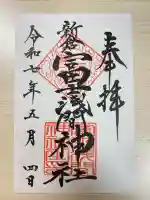 奉拝
新倉
富士浅間神社
令和七年五月四日